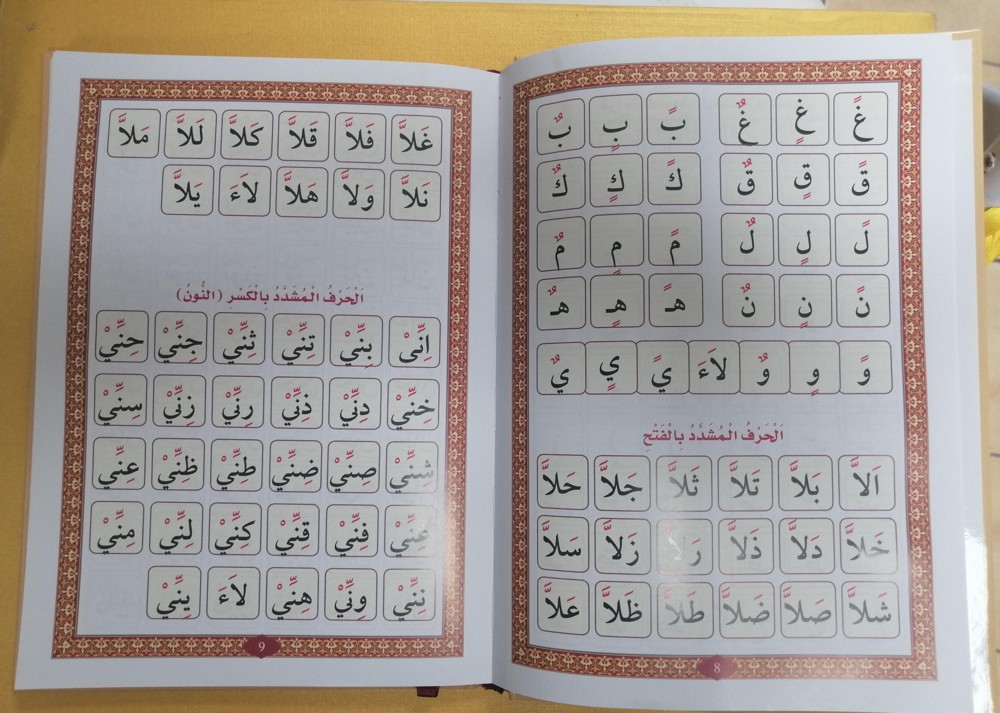 غً غٍ غٌ بً بٍ بٌ
قً قٍ قٌ كً كٍ كٌ
لً لٍ لٌ مً مٍ مٌ
نً نٍ نٌ هـً هـٍ هـٌ
وً وٍ وٌ لاَءَ يً يٍ يٌ
اَلْحَرْفُ الْمُشَدَّدُ بِالْفَتْحِ
اَلاَّ بَلاَّ تَلاَّ ثَلاَّ جَلاَّ حَلاَّ
خَلاَّ دَلاَّ ذَلاَّ رَلاَّ زَلاَّ سَلاَّ
شَلاَّ صَلاَّ ضَلاَّ طَلاَّ ظَلاَّ عَلاَّ
8
غَلاَّ فَلاَّ قَلاَّ كَلاَّ لَلاَّ مَلاَّ
نَلاَّ وَلاَّ هَلاَّ لاَءَ يَلاَّ
اَلْحَرْفُ الْمُشَدَّدُ بِالْكَسْرِ (النُّونُ)
اِنِّىْ بِنِّيْ تِنِّيْ ثِنِّيْ جِنِّيْ حِنِّيْ
خِنِّيْ دِنِّيْ ذِنِّيْ رِنِّيْ زِنِّيْ سِنِّيْ
شِنِّيْ صِنِّيْ ضِنِّيْ طِنِّيْ ظِنِّيْ عِنِّيْ
غِنِّيْ فِنِّيْ قِنِّيْ كِنِّيْ لِنِّيْ مِنِّيْ
نِنِّيْ وِنِّيْ هِنِّيْ لاَءَ يِنِّيْ
9